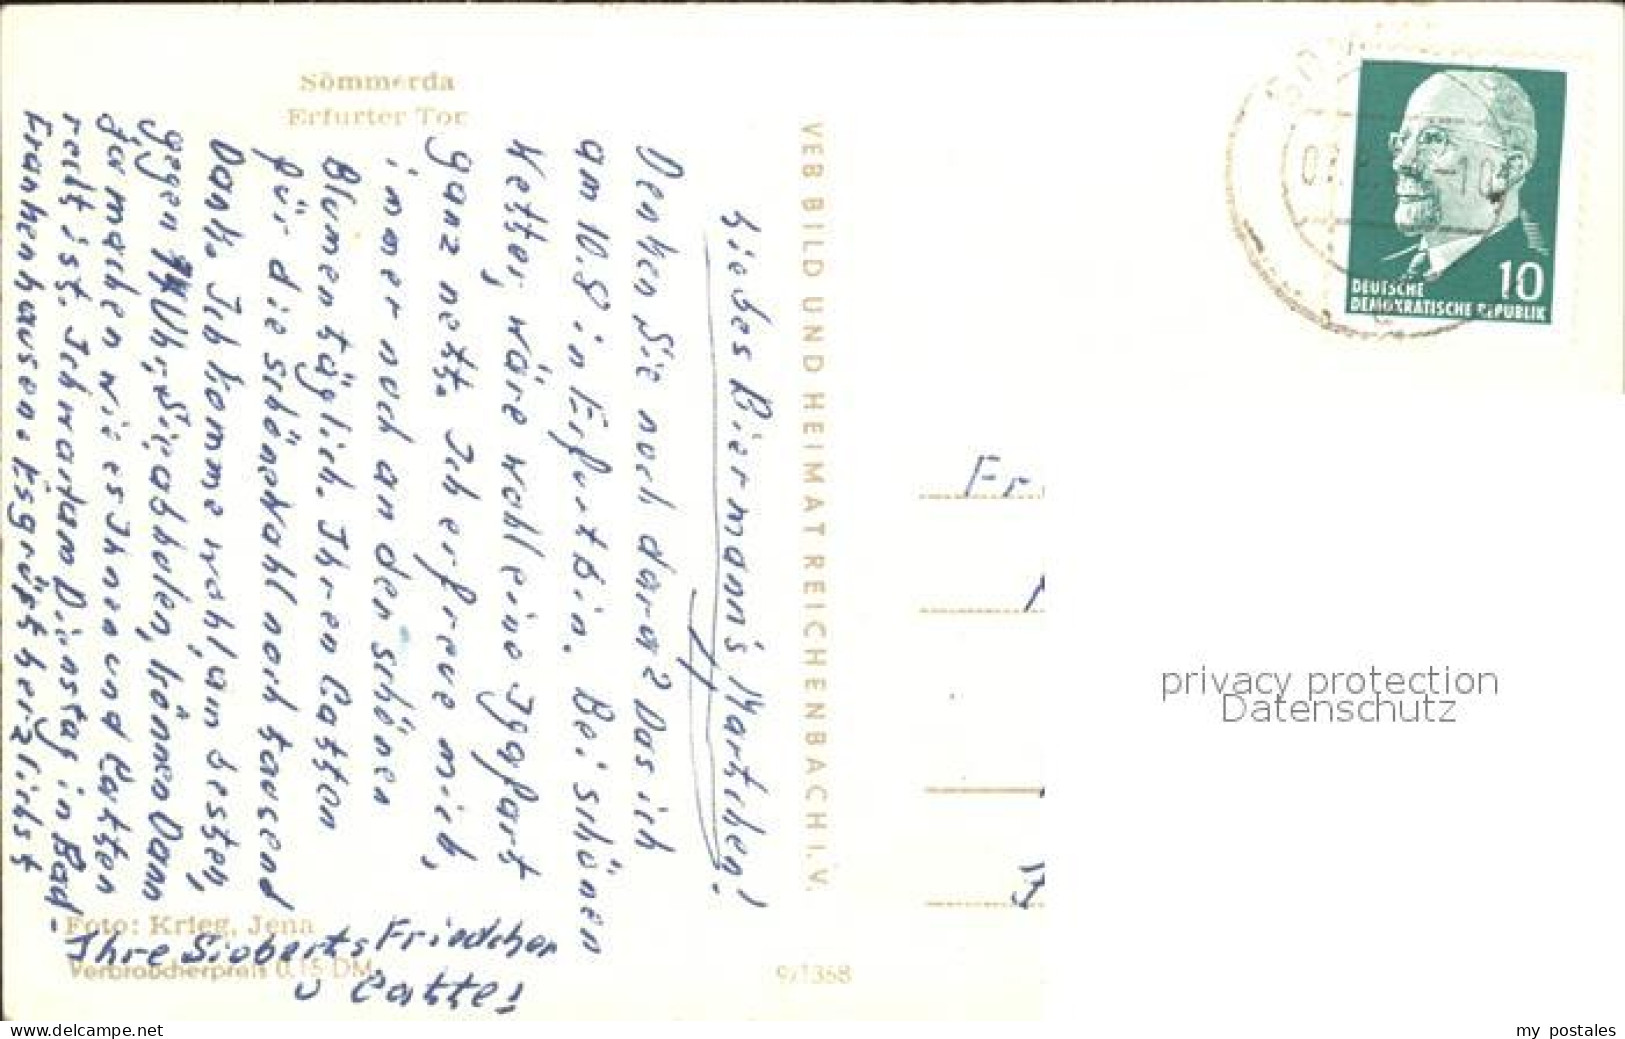 Sömmerda
Erfurter Tor
Liebes Biermann's Martichen!
Denken Sie noch daran? Das ich
am 10.8 in Erfurt bin. Bei schönen
Wetter, wäre wohl eine
ganz nett. Ich erfreue mich,
immer noch an den schönen
Blumen täglich. Ihren Gatten
für die schöne Wahl noch tausend
Dank. Ich komme wohl am besten,
gegen Uhr, Sie abholen, können Dann
ja machen wie es Ihnen und Gatten
recht ist. Ich war am Dienstag in Bad-
Frankenhausen. Es grüßt herzlichst
Ihre Sieberts Friedchen
u Gatte!
Foto: Krieg, Jena
Verbraucherpreis 0,15 DM
9/1368
VEB BILD UND HEIMAT REICHENBACH I. V.
10
DEUTSCHE
DEMOKRATISCHE REPUBLIK
Fr
privacy protection
Datenschutz
www.delcampe.net
my postales